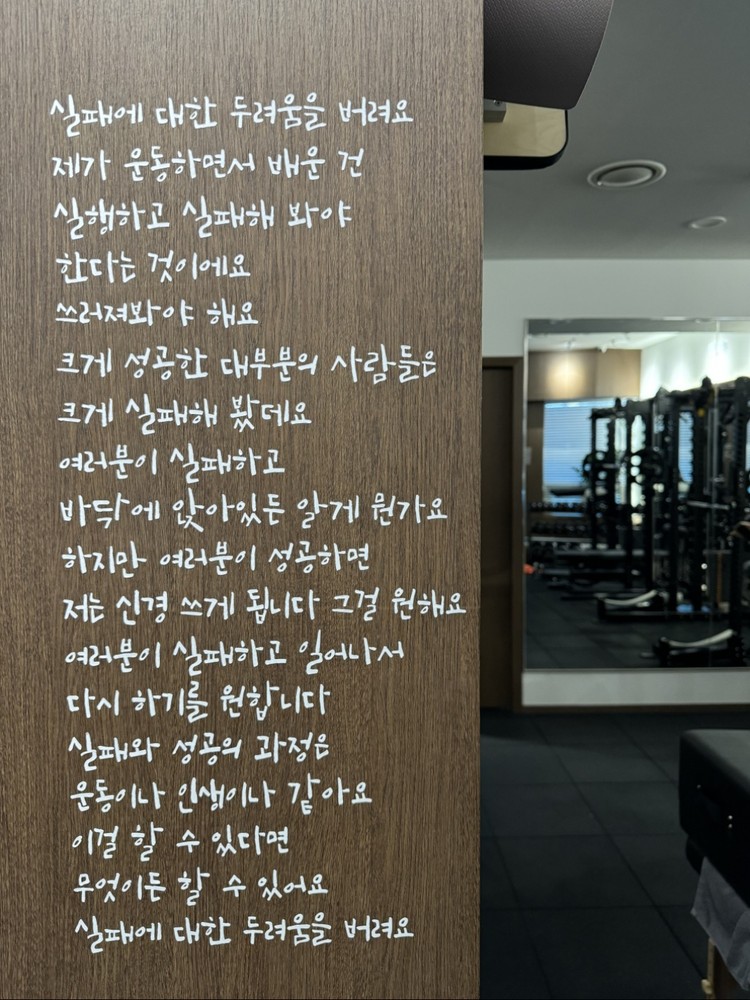 실패에 대한 두려움을 버려요
제가 운동하면서 배운 건
실행하고 실패해 봐야
한다는 것이에요
쓰러져봐야 해요
크게 성공한 대부분의 사람들은
크게 실패해 봤데요
여러분이 실패하고
바닥에 앉아있든 알게 뭔가요
하지만 여러분이 성공하면
저는 신경 쓰게 됩니다 그걸 원해요
여러분이 실패하고 일어나서
다시 하기를 원합니다
실패와 성공의 과정은
운동이나 인생이나 같아요
이걸 할 수 있다면
무엇이든 할 수 있어요
실패에 대한 두려움을 버려요